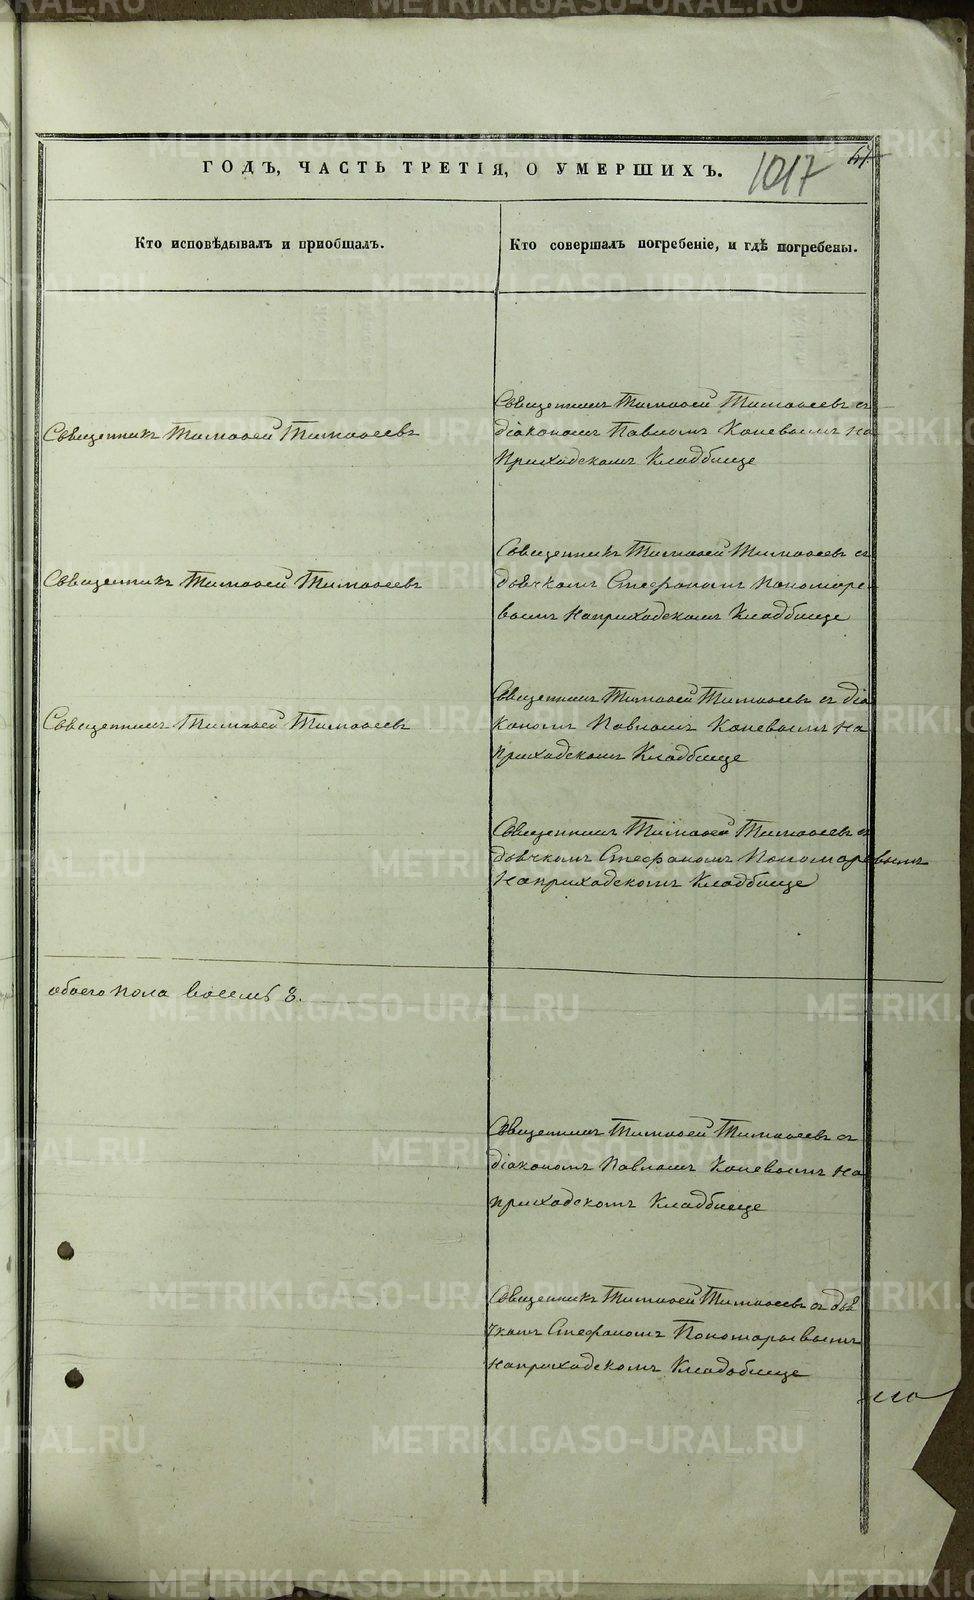 ГОДЪ, ЧАСТЬ ТРЕТІЯ, О УМЕРШИХЪ.
1017
Кто исповѣдывалъ и пріобщалъ.
Кто совершалъ погребеніе, и гдѣ погребены.
Священникъ Тимоѳей Тимоѳеевъ
Священникъ Тимоѳей Тимоѳеевъ съ
діакономъ Павломъ Коневымъ на
Приходскомъ Кладбище
Священникъ Тимоѳей Тимоѳеевъ
Священникъ Тимоѳей Тимоѳеевъ съ
дьячкомъ Стефаномъ Пономаре
вымъ на приходскомъ Кладбище
Священникъ Тимоѳей Тимоѳеевъ
Священникъ Тимоѳей Тимоѳеевъ съ діа
кономъ Павломъ Коневымъ на
приходскомъ Кладбище
Священникъ Тимоѳей Тимоѳеевъ съ
дьячкомъ Стефаномъ Пономаревымъ
на приходскомъ Кладбище
обоего пола восемь 8.
Священникъ Тимоѳей Тимоѳеевъ съ
діакономъ Павломъ Коневымъ на
приходскомъ Кладбище
Священникъ Тимоѳей Тимоѳеевъ съ дья
чкомъ Стефаномъ Пономаревымъ
на приходскомъ Кладбище
METRIKI.GASO-URAL.RU